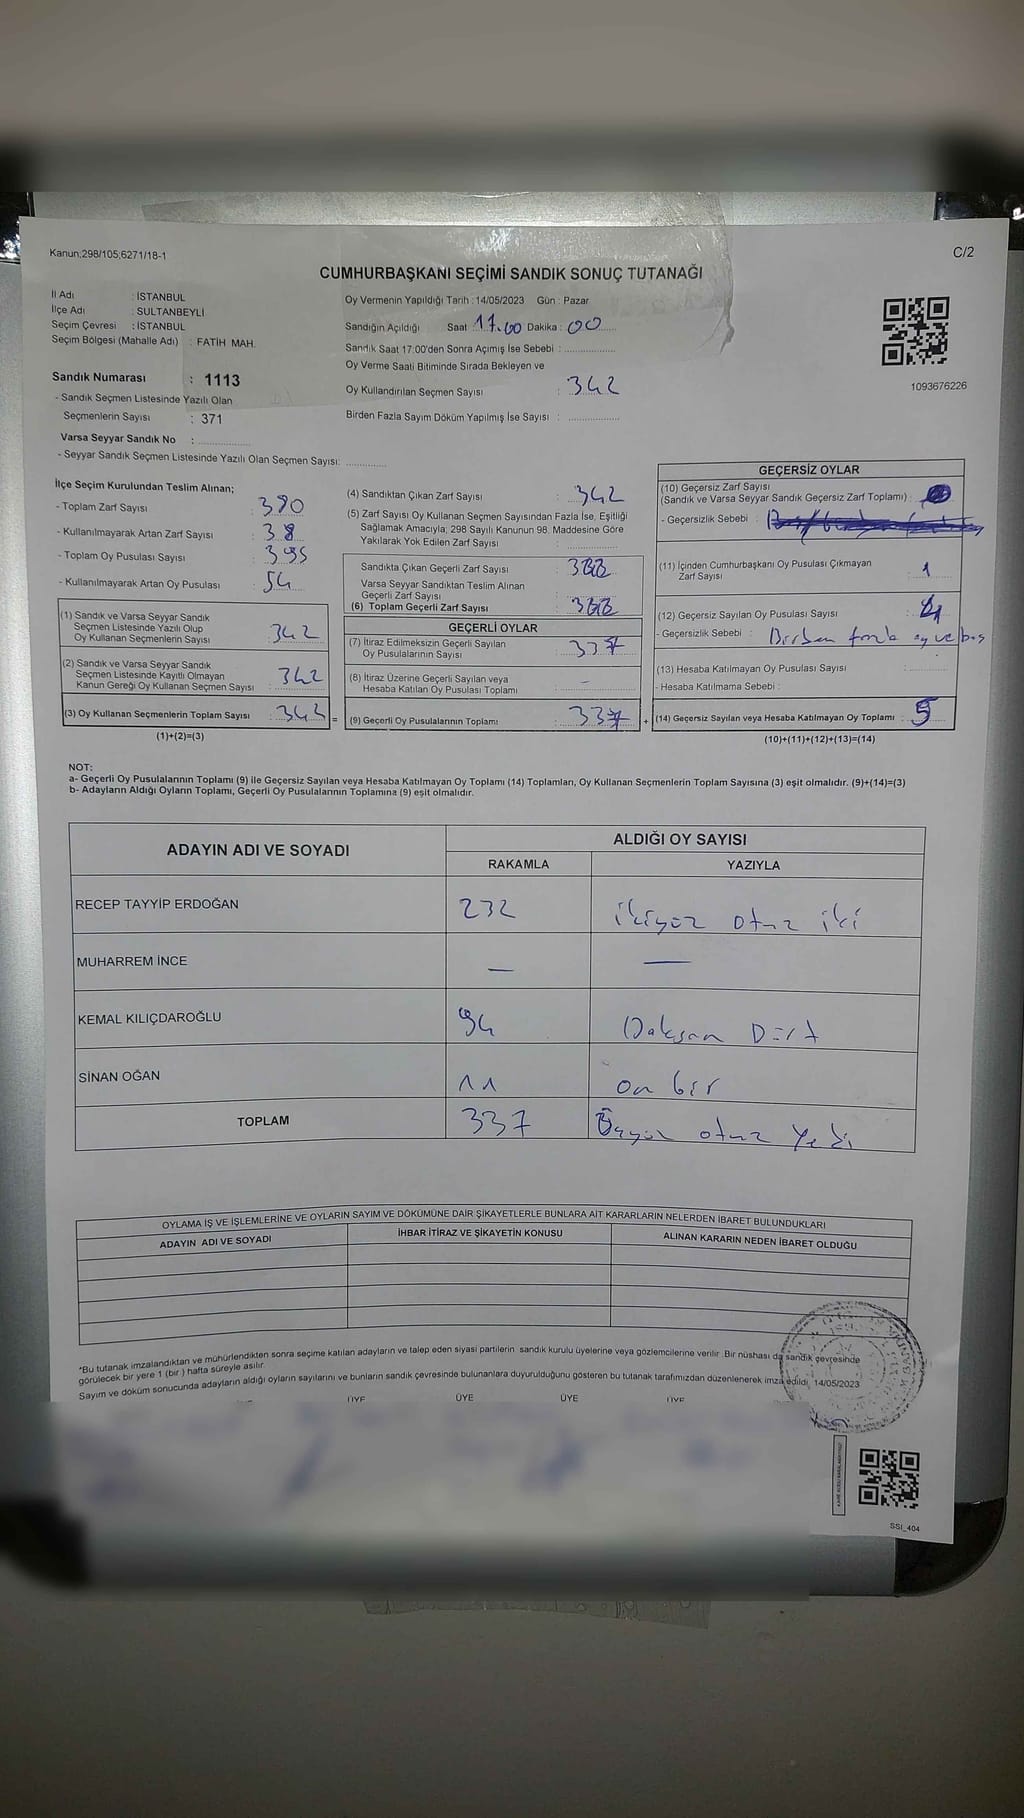 Kanun;298/105;6271/18-1
C/2
CUMHURBAŞKANI SEÇİMİ SANDIK SONUÇ TUTANAĞI
İl Adı : İSTANBUL
İlçe Adı : SULTANBEYLİ
Seçim Çevresi : İSTANBUL
Seçim Bölgesi (Mahalle Adı) : FATİH MAH.
Sandık Numarası : 1113
- Sandık Seçmen Listesinde Yazılı Olan
Seçmenlerin Sayısı : 371
Varsa Seyyar Sandık No :
- Seyyar Sandık Seçmen Listesinde Yazılı Olan Seçmen Sayısı:
Oy Vermenin Yapıldığı Tarih : 14/05/2023 Gün : Pazar
Sandığın Açıldığı Saat : 17.00 Dakika : 00
Sandık Saat 17:00'den Sonra Açımış İse Sebebi :
Oy Verme Saati Bitiminde Sırada Bekleyen ve
Oy Kullandırılan Seçmen Sayısı : 342
Birden Fazla Sayım Döküm Yapılmış İse Sayısı :
1093676226
İlçe Seçim Kurulundan Teslim Alınan;
- Toplam Zarf Sayısı : 380
- Kullanılmayarak Artan Zarf Sayısı : 38
- Toplam Oy Pusulası Sayısı : 395
- Kullanılmayarak Artan Oy Pusulası : 54
(1) Sandık ve Varsa Seyyar Sandık
Seçmen Listesinde Yazılı Olup
Oy Kullanan Seçmenlerin Sayısı : 342
(2) Sandık ve Varsa Seyyar Sandık
Seçmen Listesinde Kayıtlı Olmayan
Kanun Gereği Oy Kullanan Seçmen Sayısı : 342
(3) Oy Kullanan Seçmenlerin Toplam Sayısı : 342 =
(1)+(2)=(3)
(4) Sandıktan Çıkan Zarf Sayısı : 342
(5) Zarf Sayısı Oy Kullanan Seçmen Sayısından Fazla İse, Eşitliği
Sağlamak Amacıyla; 298 Sayılı Kanunun 98. Maddesine Göre
Yakılarak Yok Edilen Zarf Sayısı :
Sandıkta Çıkan Geçerli Zarf Sayısı :
Varsa Seyyar Sandıktan Teslim Alınan
Geçerli Zarf Sayısı :
(6) Toplam Geçerli Zarf Sayısı :
GEÇERLİ OYLAR
(7) İtiraz Edilmeksizin Geçerli Sayılan
Oy Pusulalarının Sayısı : 337
(8) İtiraz Üzerine Geçerli Sayılan veya
Hesaba Katılan Oy Pusulası Toplamı : –
(9) Geçerli Oy Pusulalarının Toplamı : 337 +
GEÇERSİZ OYLAR
(10) Geçersiz Zarf Sayısı
(Sandık ve Varsa Seyyar Sandık Geçersiz Zarf Toplamı) :
- Geçersizlik Sebebi :
(11) İçinden Cumhurbaşkanı Oy Pusulası Çıkmayan
Zarf Sayısı : 1
(12) Geçersiz Sayılan Oy Pusulası Sayısı : 4
- Geçersizlik Sebebi : Birden fazla oy ve boş
(13) Hesaba Katılmayan Oy Pusulası Sayısı :
- Hesaba Katılmama Sebebi :
(14) Geçersiz Sayılan veya Hesaba Katılmayan Oy Toplamı : 5
(10)+(11)+(12)+(13)=(14)
NOT:
a- Geçerli Oy Pusulalarının Toplamı (9) ile Geçersiz Sayılan veya Hesaba Katılmayan Oy Toplamı (14) Toplamları, Oy Kullanan Seçmenlerin Toplam Sayısına (3) eşit olmalıdır. (9)+(14)=(3)
b- Adayların Aldığı Oyların Toplamı, Geçerli Oy Pusulalarının Toplamına (9) eşit olmalıdır.
ADAYIN ADI VE SOYADI
ALDIĞI OY SAYISI
RAKAMLA YAZIYLA
RECEP TAYYİP ERDOĞAN 232 ikiyüz otuz iki
MUHARREM İNCE — —
KEMAL KILIÇDAROĞLU 94 Doksan Dört
SİNAN OĞAN 11 on bir
TOPLAM 337 Üçyüz otuz Yedi
OYLAMA İŞ VE İŞLEMLERİNE VE OYLARIN SAYIM VE DÖKÜMÜNE DAİR ŞİKAYETLERLE BUNLARA AİT KARARLARIN NELERDEN İBARET BULUNDUKLARI
ADAYIN ADI VE SOYADI İHBAR İTİRAZ VE ŞİKAYETİN KONUSU ALINAN KARARIN NEDEN İBARET OLDUĞU
*Bu tutanak imzalandıktan ve mühürlendikten sonra seçime katılan adayların ve talep eden siyasi partilerin sandık kurulu üyelerine veya gözlemcilerine verilir. Bir nüshası da sandık çevresinde
görülecek bir yere 1 (bir ) hafta süreyle asılır.
Sayım ve döküm sonucunda adayların aldığı oyların sayılarını ve bunların sandık çevresinde bulunanlara duyurulduğunu gösteren bu tutanak tarafımızdan düzenlenerek imza edildi. 14/05/2023
ÜYE ÜYE ÜYE ÜYE
SSI_404